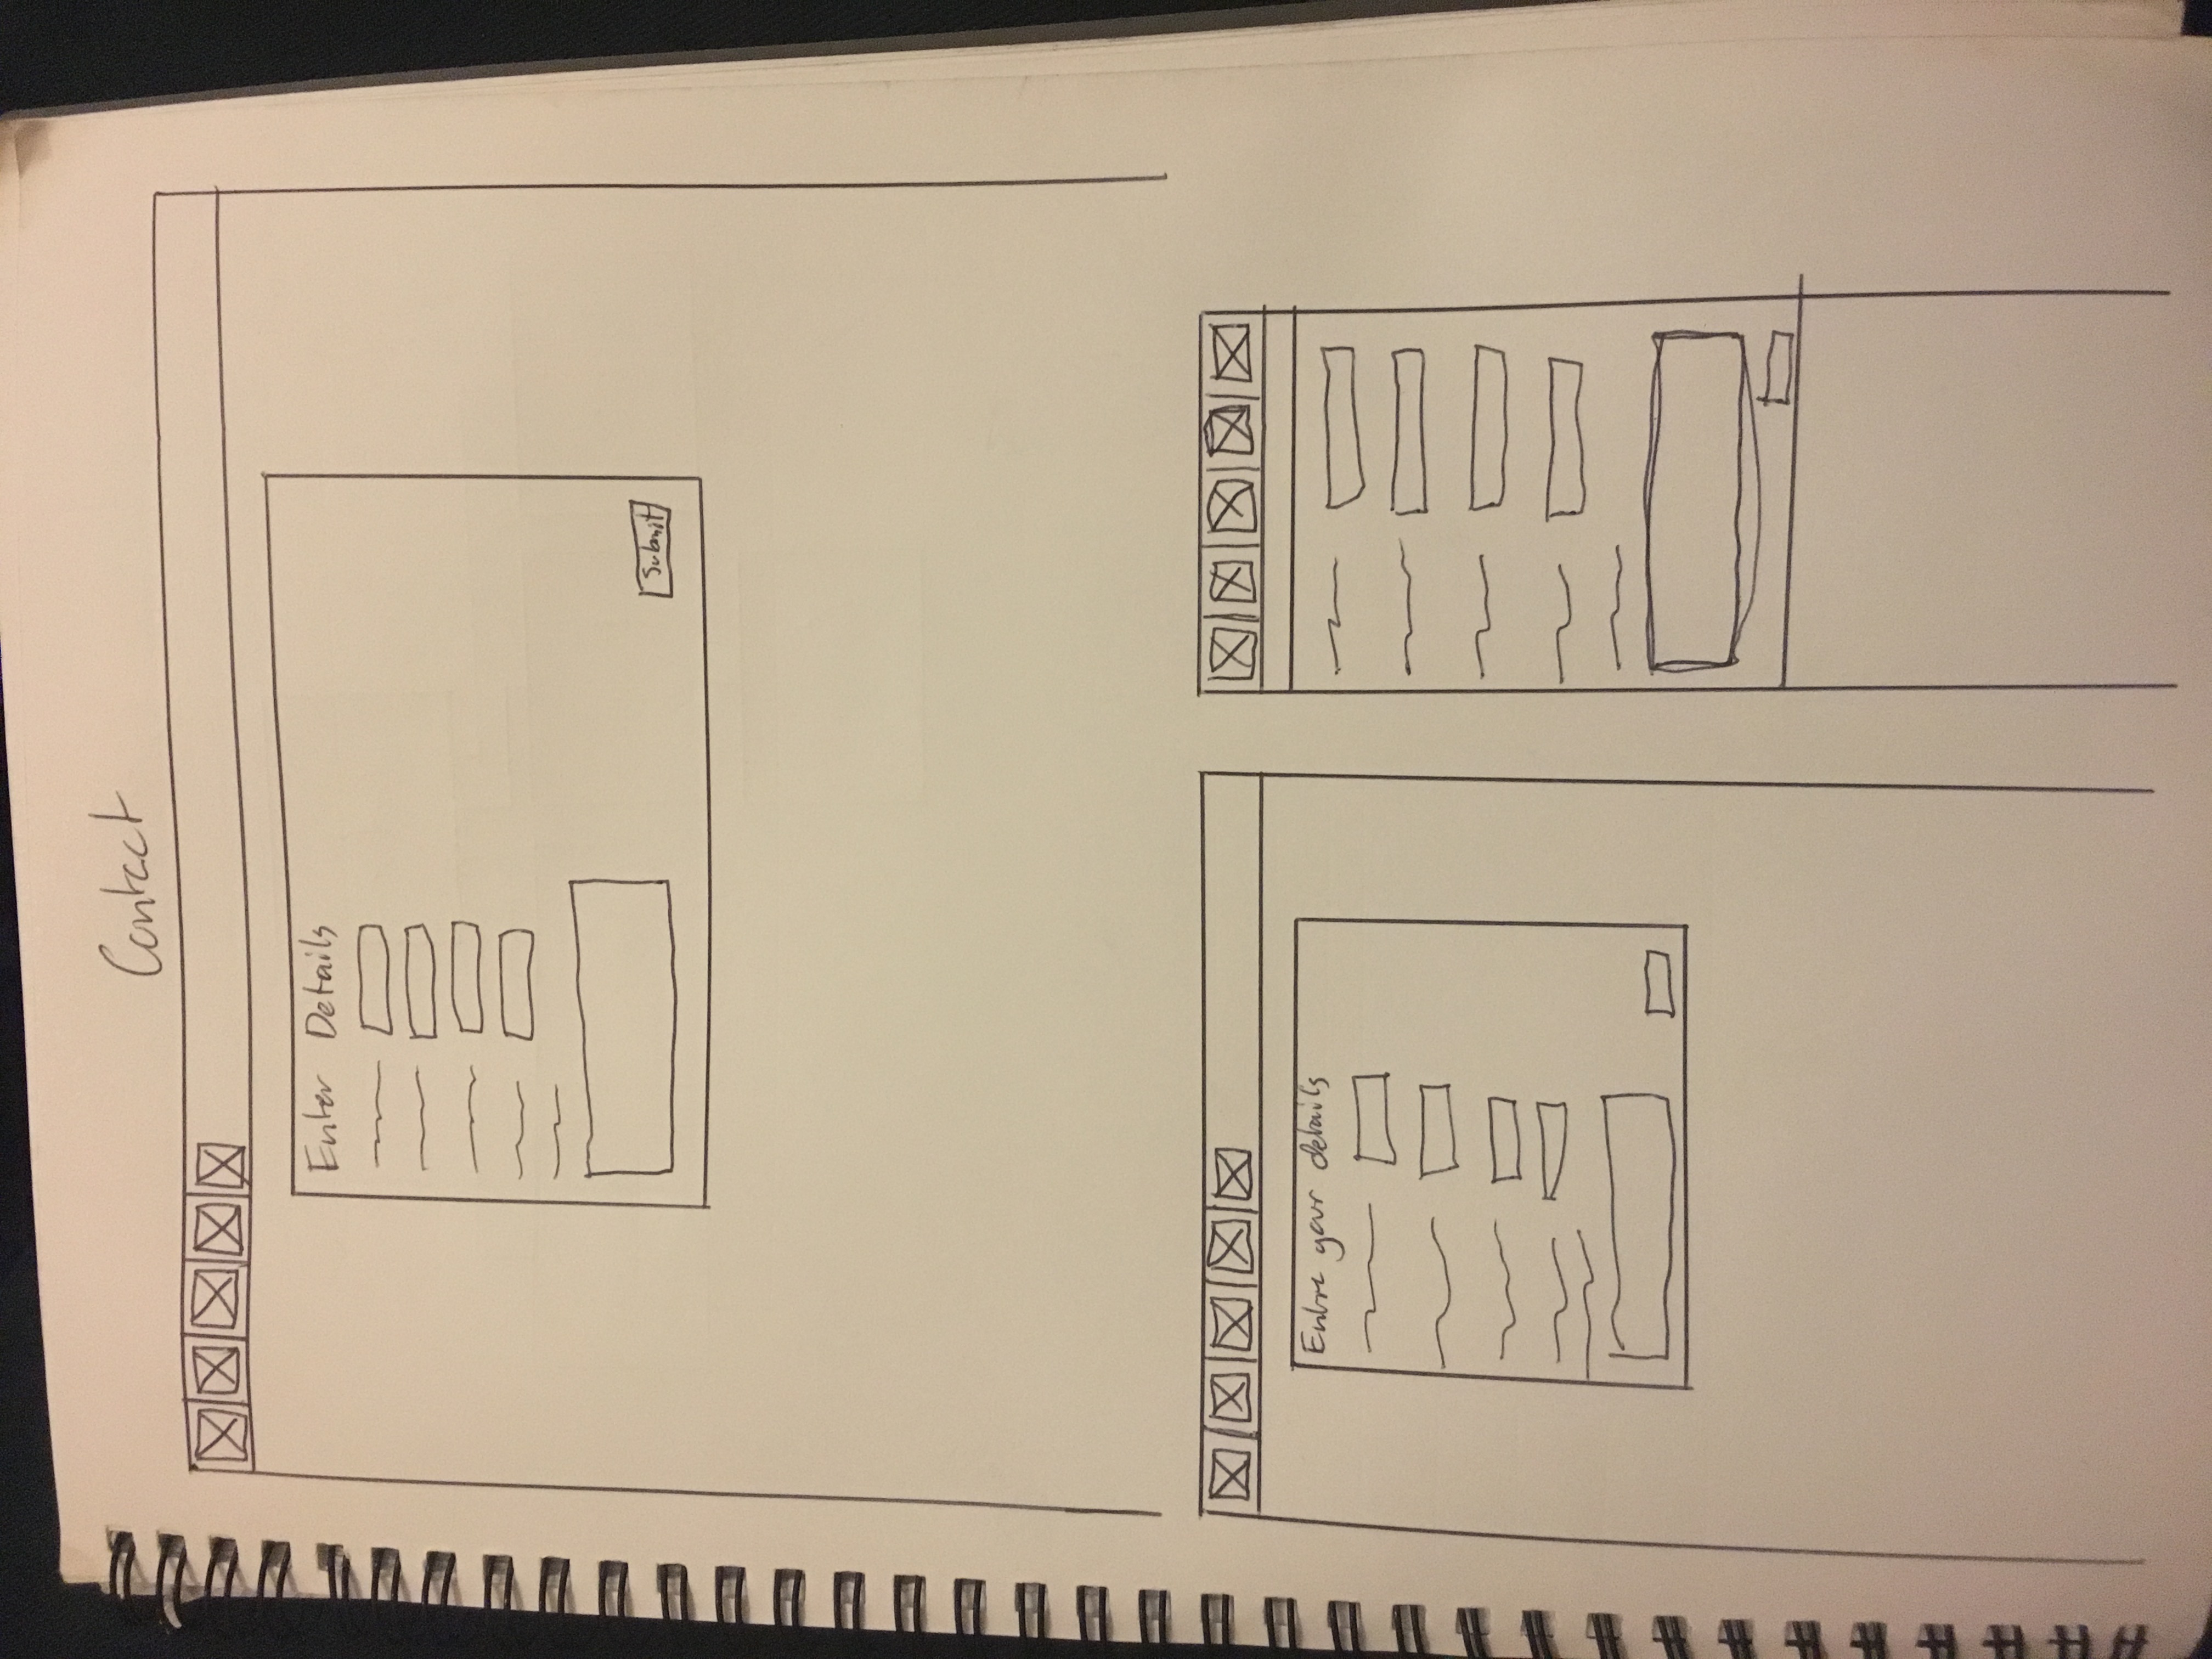 Contact
Enter Details
Submit
Entre your details